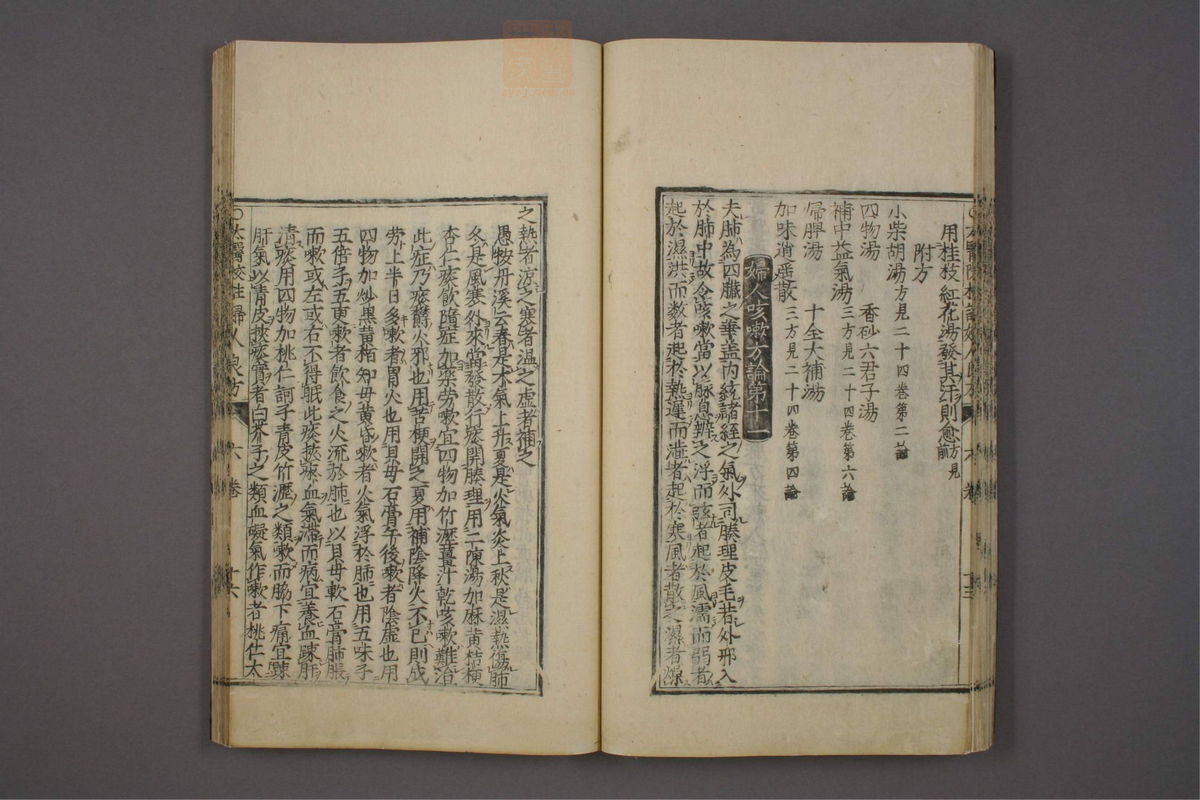 用桂枝紅花湯發其汗則愈方見前
附方
小柴胡湯方見二十四卷第二論
四物湯 香砂六君子湯
補中益氣湯三方見二十四卷第六論
帰脾湯 十全大補湯
加味逍遥散三方見二十四卷第四論
婦人咳嗽方論第十一
夫肺為四臓之華盖内統諸経之氣外司腠理皮毛若外邪入
於肺中故令咳嗽當以脉息辨之浮而緩者起於風濡而弱者
起於濕洪而数者起於熱遅而濇者起於寒風者散之濕者燥
之熱者涼之寒者温之虚者補之
愚按丹溪云春是木氣上升夏是火氣炎上秋是濕熱傷肺
冬是風寒外來當發散行痰開腠理用二陳湯加麻黄桔梗
杏仁痰飲隨症加藥劳嗽宜四物加竹瀝薑汁乾咳嗽難治
此症乃痰欝火邪也用苦梗開之夏用補陰降火不已則成
劳上半日多嗽者胃火也用貝母石膏午後嗽者陰虚也用
四物加炒黒黄栢知母黄昏嗽者火氣浮於肺也用五味子
五倍子五更嗽者飲食之火流於肺也以貝母軟石膏肺脹
而嗽或左或右不得眠此痰挾瘀血氣滞而病宜養血疎肝
清痰用四物加桃仁訶子青皮竹瀝之類嗽而脇下痛宜疎
肝氣以青皮挾痰實者白芥子之類血礙氣作嗽者桃仁大
〇太醫院校註婦人良方 六卷 十六